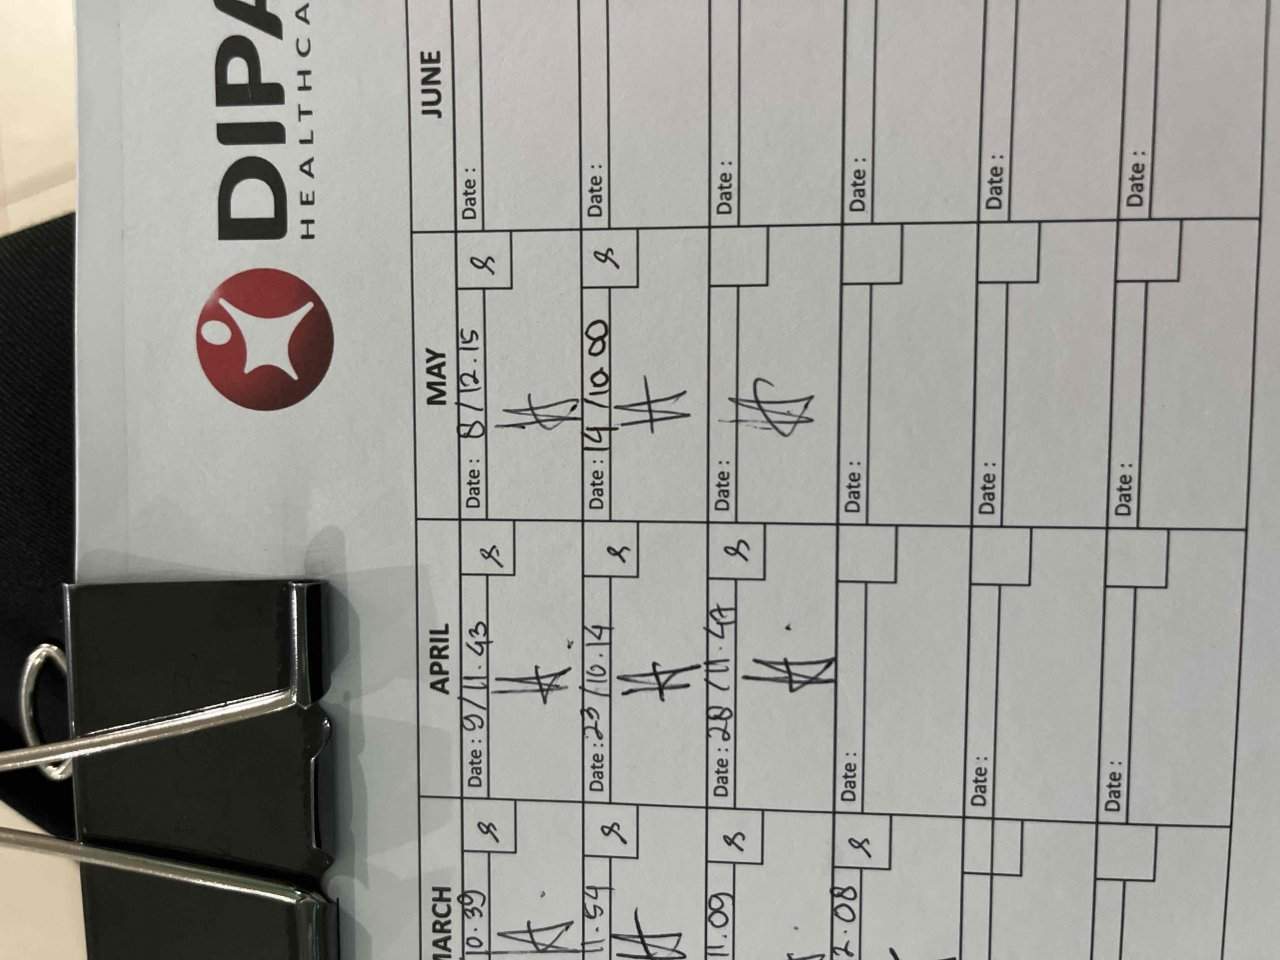 DIPA
HEALTHCA
MARCH APRIL MAY JUNE
10.39 8 Date : 9/11.43 8 Date : 8/12.15 8 Date :
11.54 8 Date : 23/10.14 8 Date : 14/10.00 8 Date :
11.09 8 Date : 28/11.47 8 Date : Date :
2.08 8 Date : Date : Date :
Date : Date : Date :
Date : Date : Date :